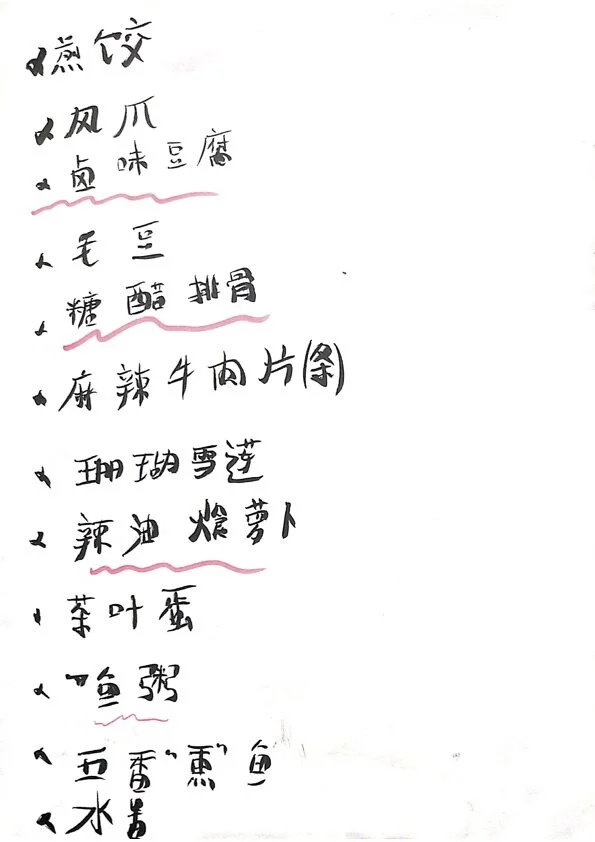 煎饺
凤爪
卤味豆腐
毛豆
糖醋排骨
麻辣牛肉片(条)
珊瑚雪莲
辣油炝萝卜
茶叶蛋
鱼粥
五香"熏"鱼
水